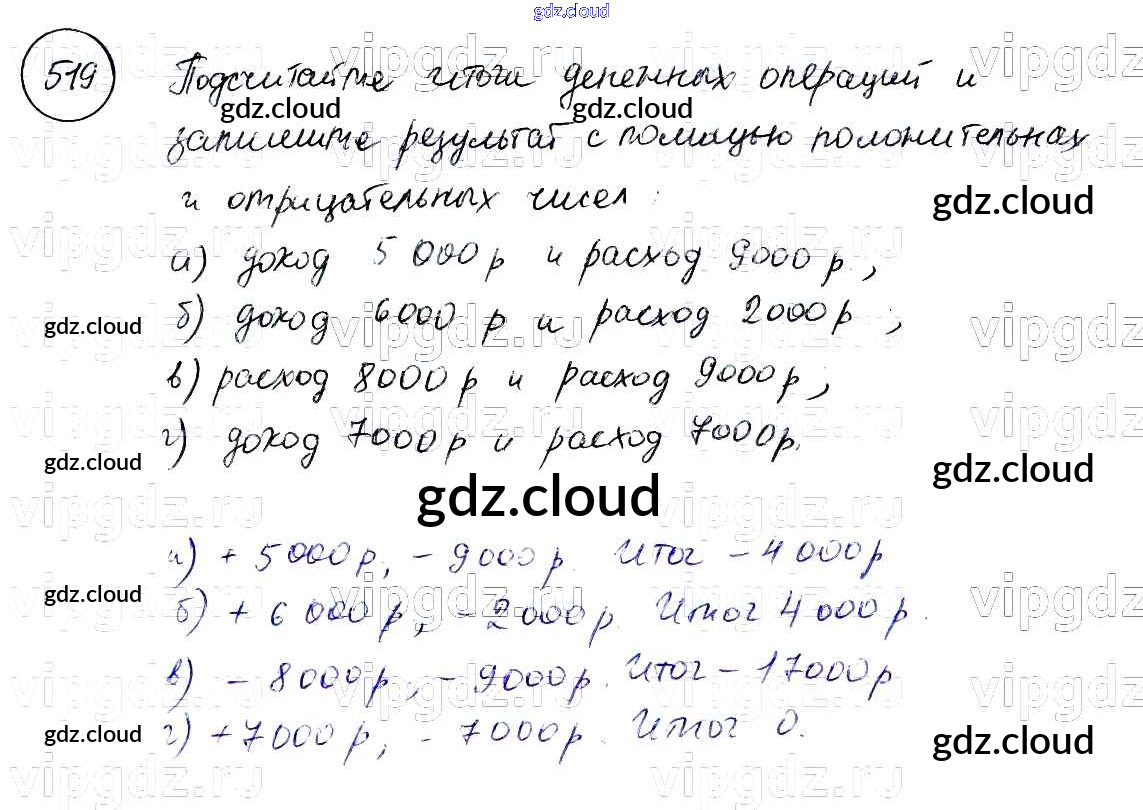 gdz.cloud
519 Подсчитайте итоги денежных операций и
gdz.cloud gdz.cloud
запишите результат с помощью положительных
и отрицательных чисел:
gdz.cloud
а) доход 5 000 р и расход 9000 р,
б) доход 6000 р и расход 2000 р,
gdz.cloud
в) расход 8000 р и расход 9000 р,
г) доход 7000 р и расход 7000 р.
gdz.cloud gdz.cloud
gdz.cloud
а) + 5 000 р, - 9000 р. Итог - 4 000 р
gdz.cloud
б) + 6 000 р, - 2000 р. Итог 4 000 р.
в) - 8000 р, - 9000 р. Итог - 17000 р
г) + 7000 р, - 7000 р. Итог 0.
gdz.cloud gdz.cloud
vipgdz.ru